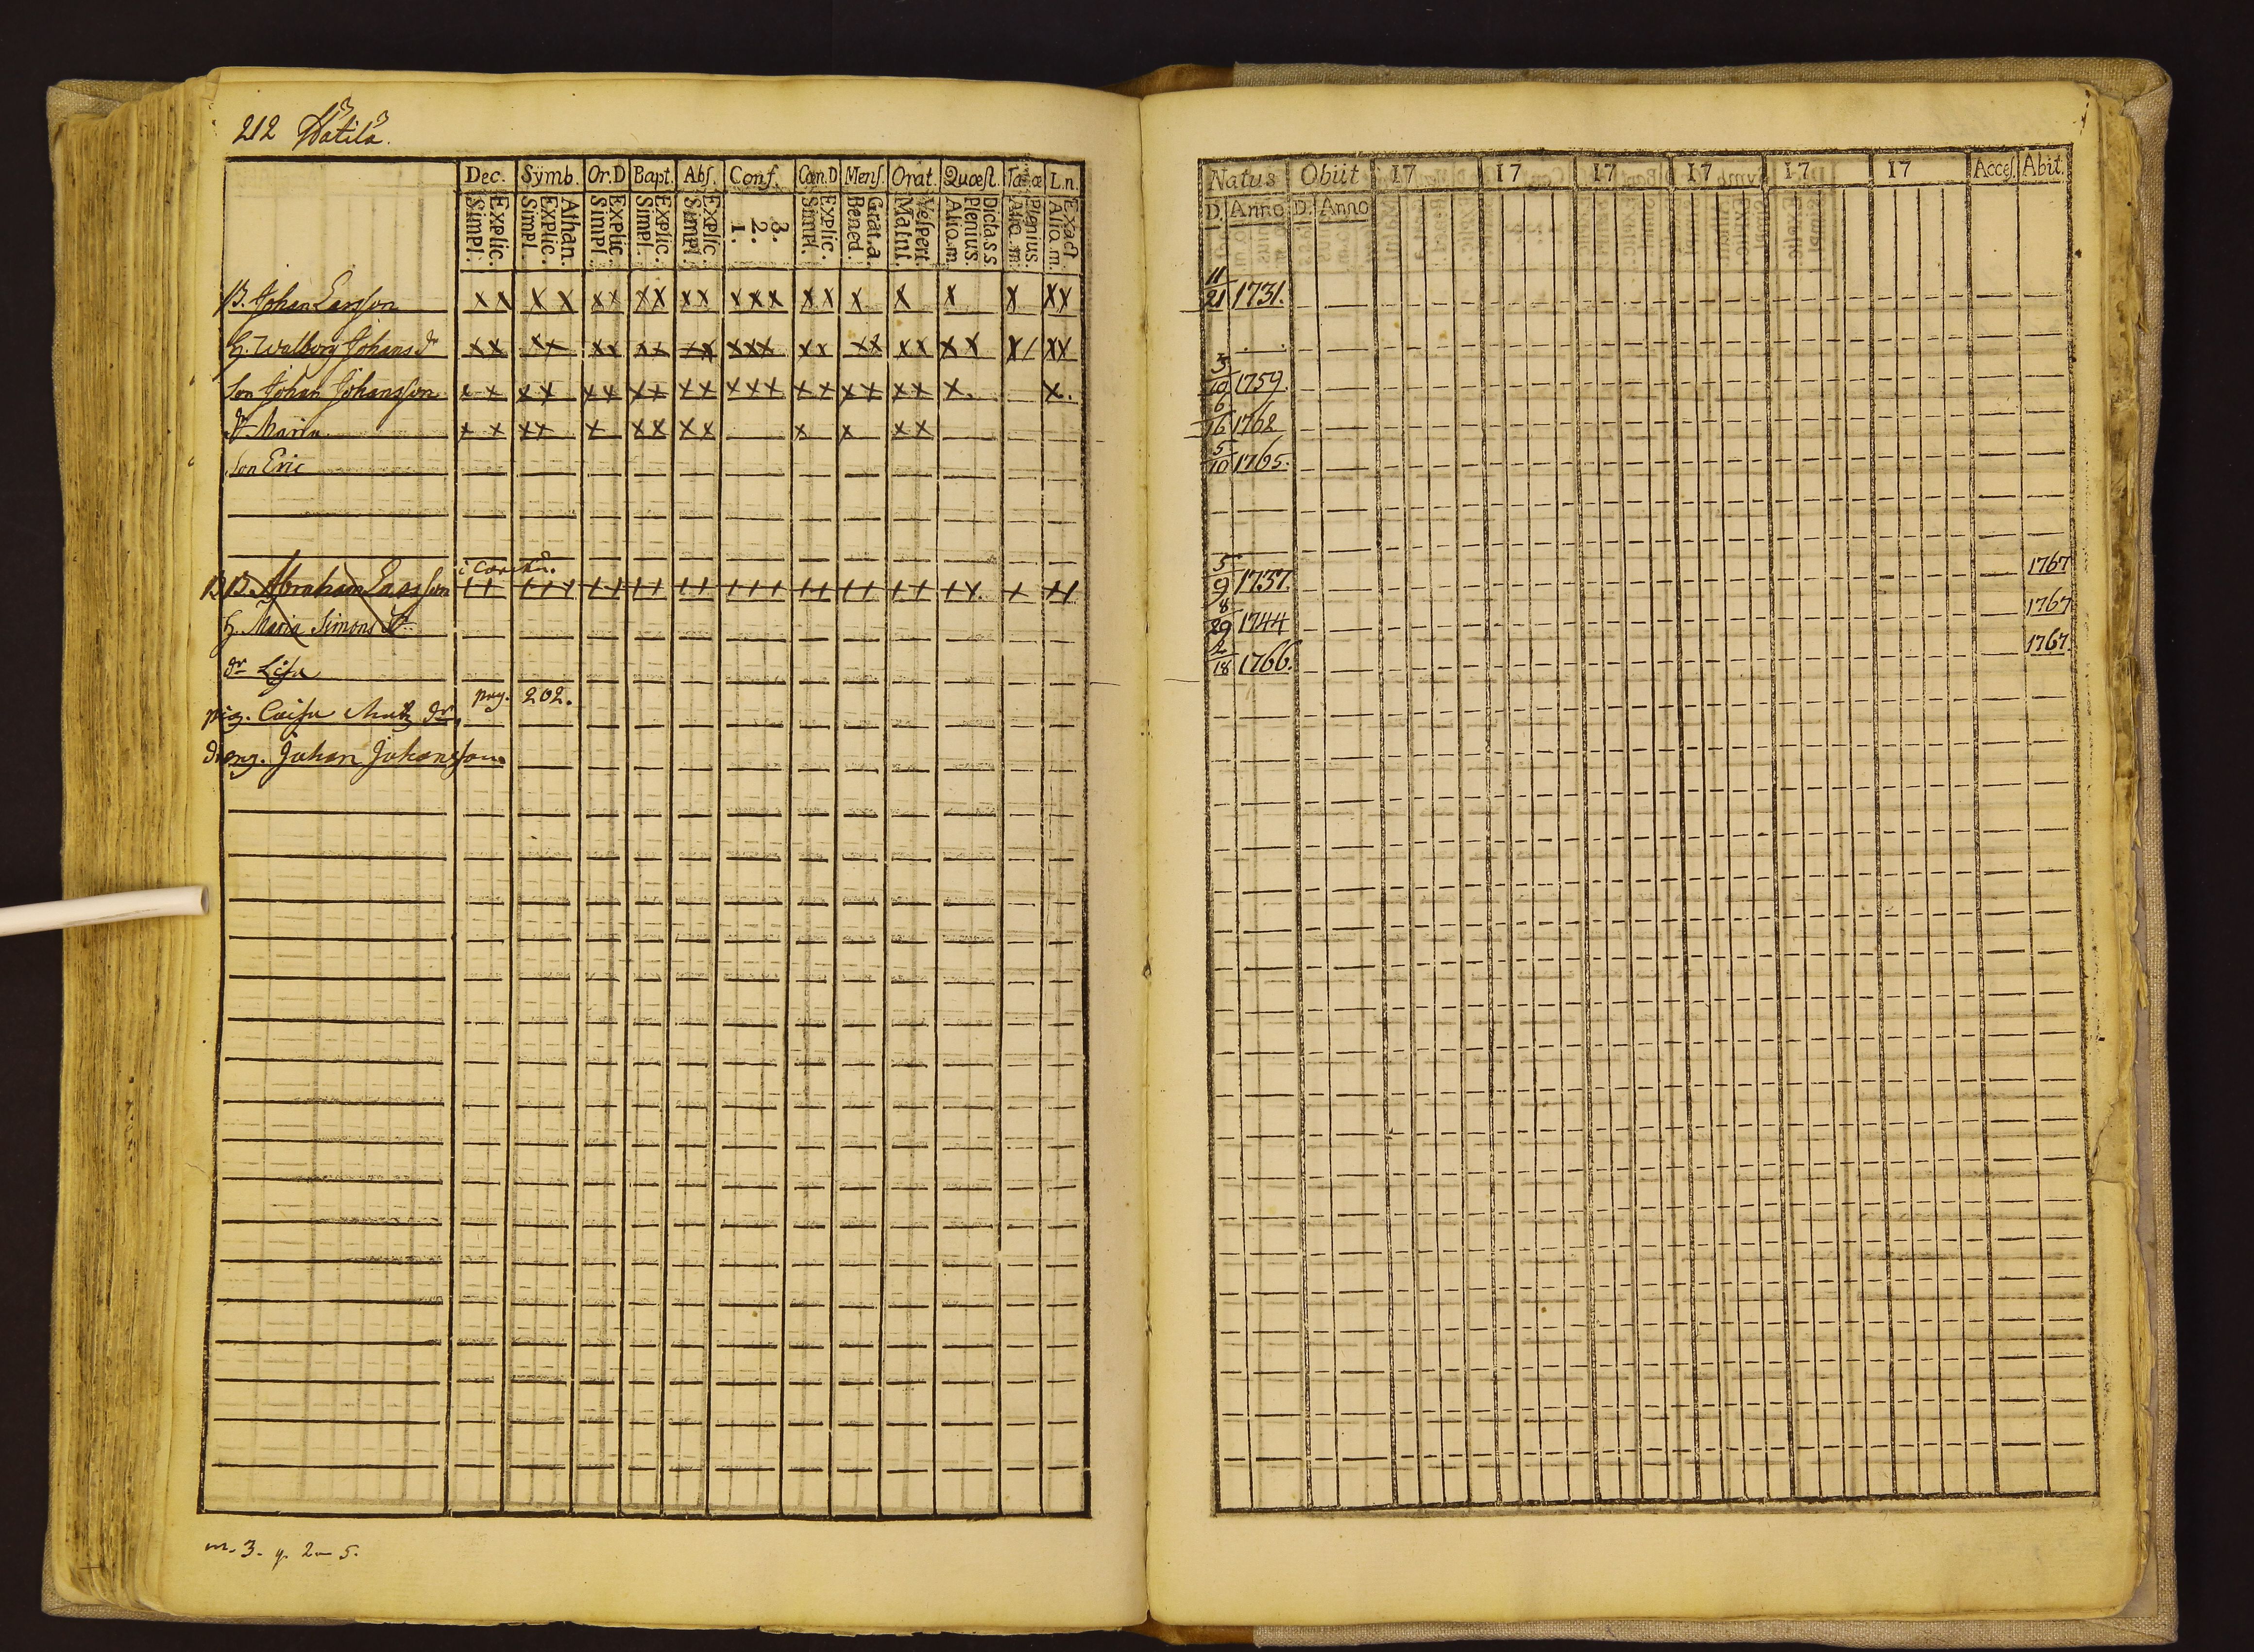 212 Wåtila.
Dec. Sÿmb. Or.D Bapt. Abs. Conf. Cœn.D Mens. Orat. Quæst. Ta æ L.n.
Simpl. Explic. Simpl. Explic. Athan. Simpl. Explic. Simpl. Explic. Simpl. Explic. 1. 2. 3. Simpl. Explic. Bened. Grat.a. Matut. Vespert. Alio.m. Plenius. Dicta.s.s. Alio.m. Plenius. Alio.m. Exact.
B. Johan Larsson x x x x x x x x x x x x x x x x x x x x x
H. Walborg Johans dr x x x x x x x x x x x x x x x x x x x x x x / x x
Son Johan Johansson x x x x x x x x x x x x x x x x x x x x. x.
dr Maria x x x x x x x x x x x x x
Son Eric
B. Abraham Larsson
H. Maria Simons dr
dr Lisa
pag. 202.
pig. Caisa Matts dr
dreng. Johan Johansson
m. 3. q. 2 — 5.
Natus Obiit 17 17 17 17 17 17 Acces. Abit.
D. Anno D. Anno
11/21 1731.
3/10 1759.
6/16 1762
5/10 1765.
5/9 1737. 1767
8/29 1744 1767
2/18 1766. 1767.